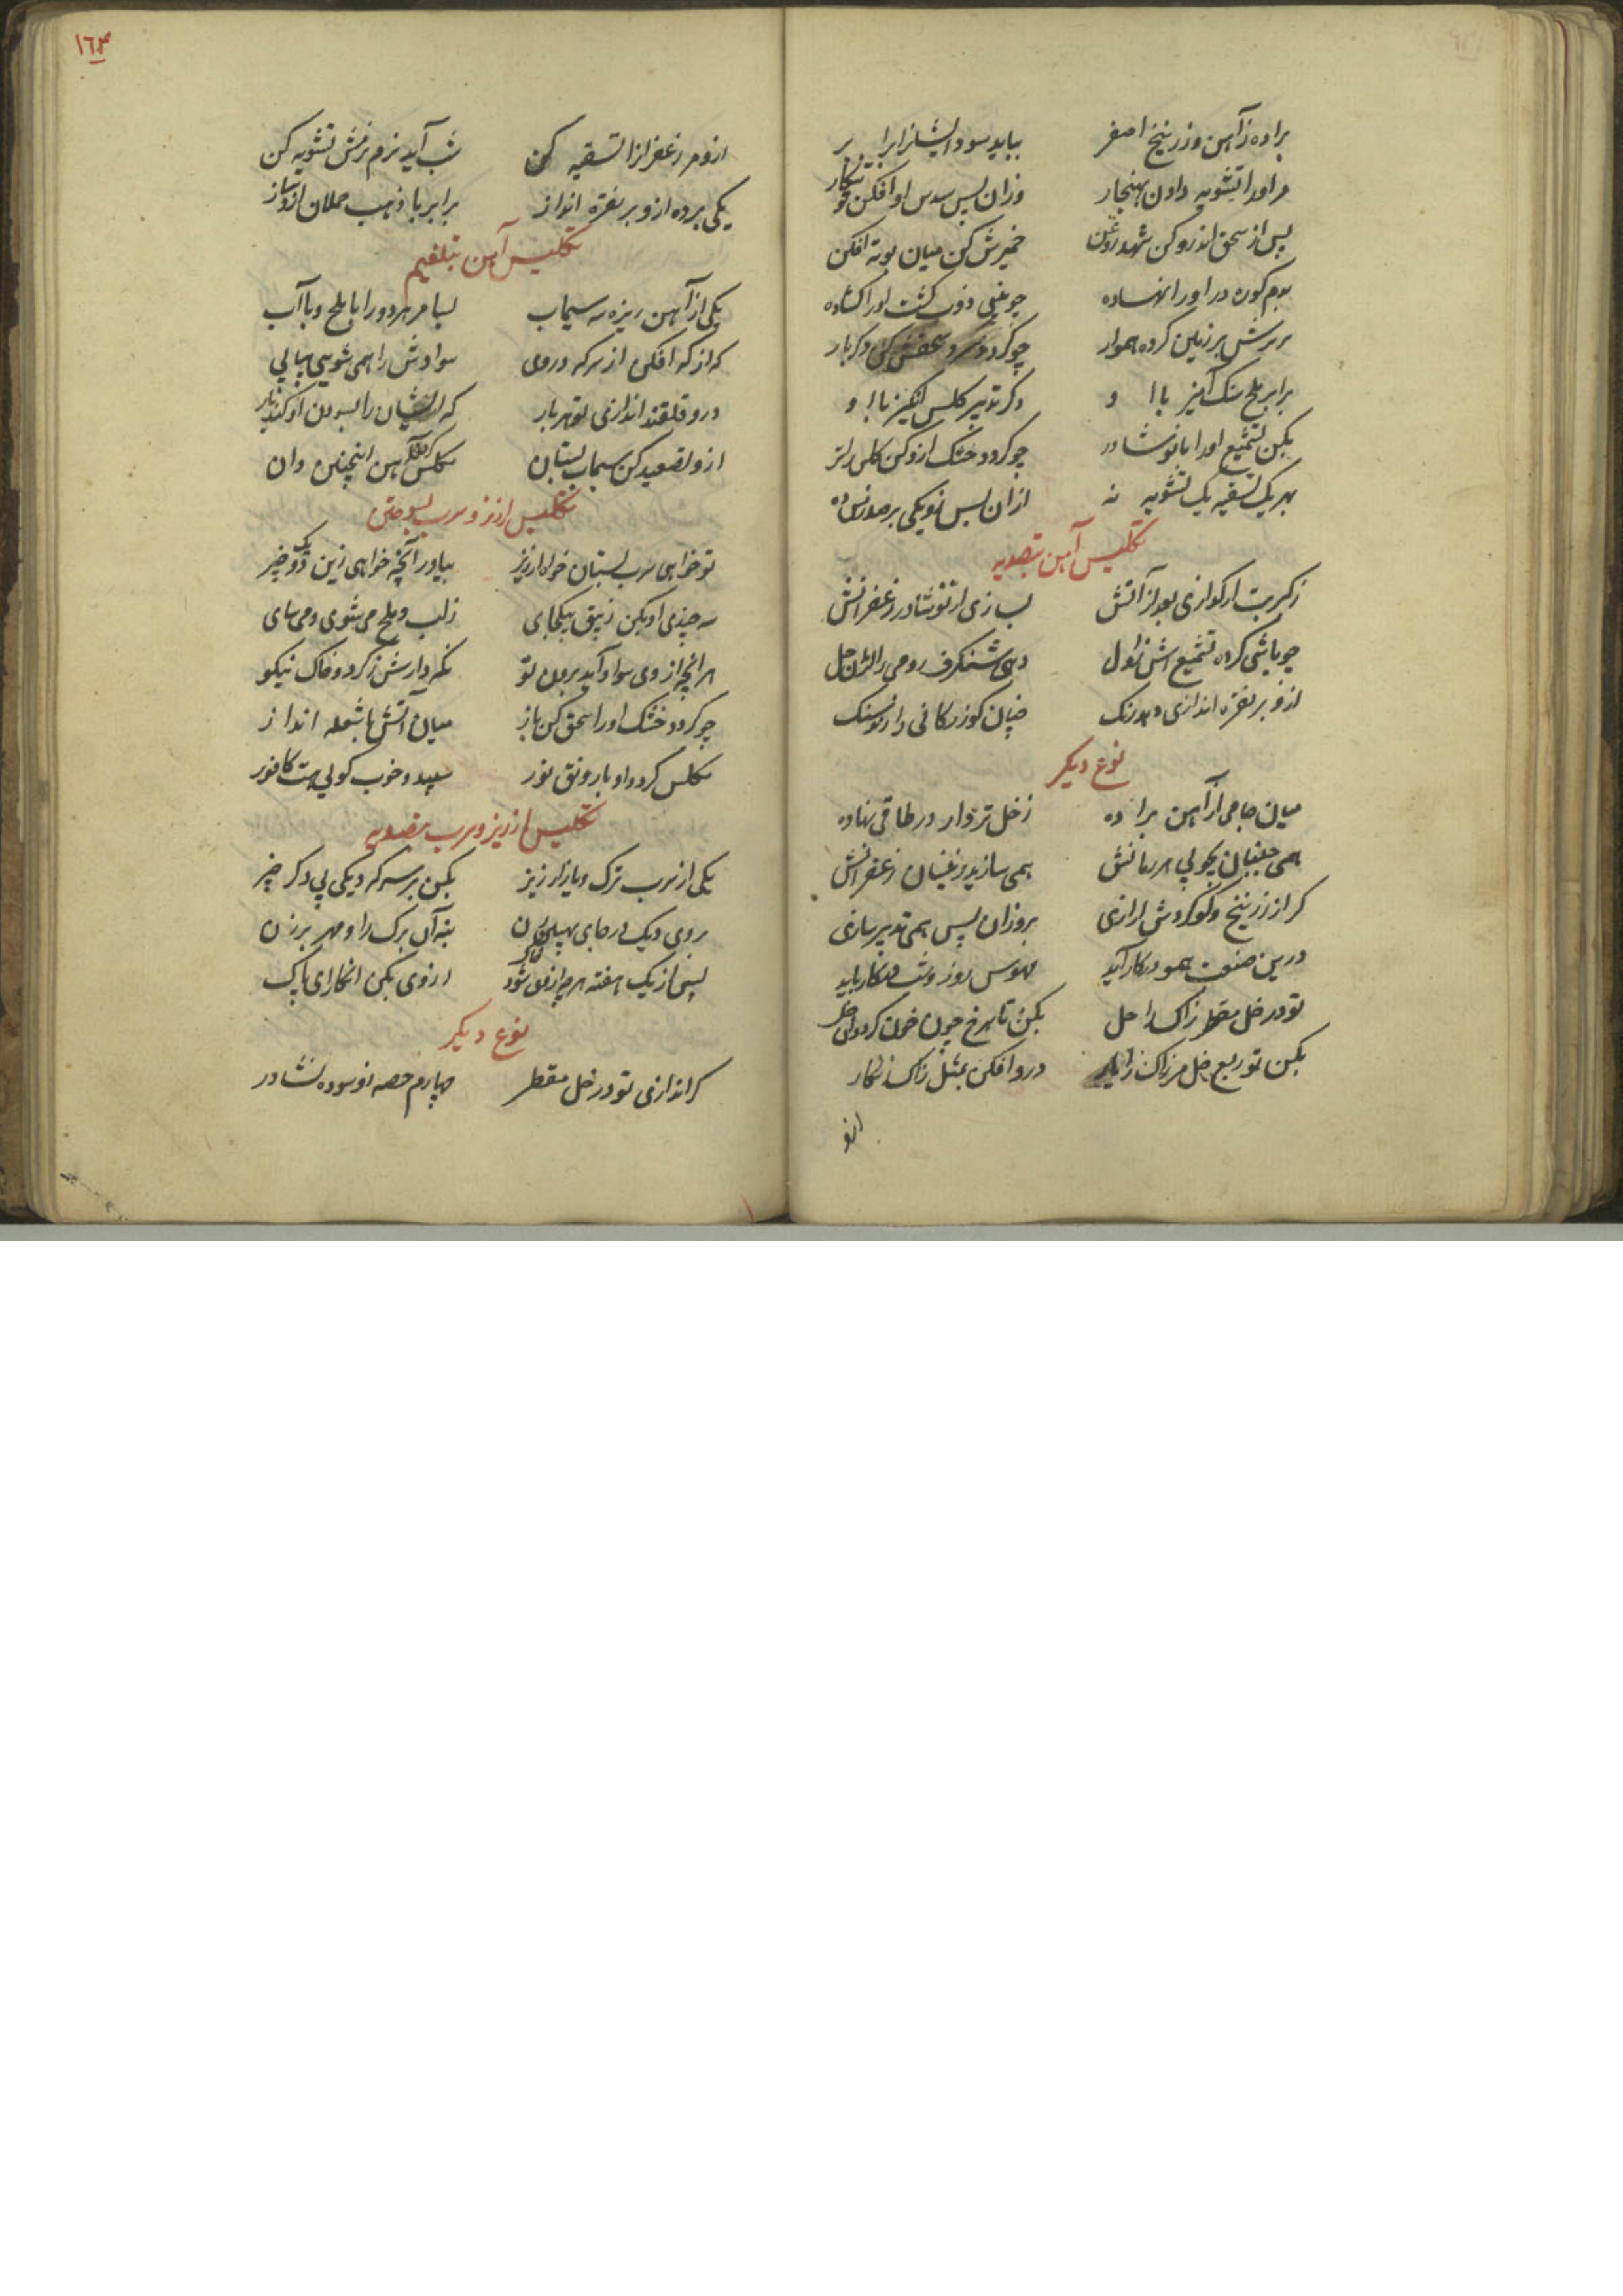 براده ز آهن و زرنیخ اصفر بباید سود ایشانرا برابر
مر او را تشویه دادن بهنجار وزان پس سدس او افکن تو تنکار
پس از سحق اندرو کن شهد و روغن خمیرش کن میان بوته افکن
بدم کوره در او را نهاده چو بینی ذوب کشت او را کشاده
برش بر زمین کرده هموار چو کردد سرد سحقش کن دکربار
برابر ملح سنک آمیز با او دکر تدبیر کلس انکیز با او
بکن تشمیع او را با نوشادر چو کردد خشک ازو کن کلس را تر
بهر یک تسقیه یک تشویه نه ازان پس زو یکی بر صد
تکلیس آهن بتصدیه
ز کبریت ار کدازی بعد از آتش بسازی از نوشادر زعفرانش
چو باشی کرده تشمیع اش ز اول دهی شنکرف رومی را ازان حل
ازو بر نقره اندازی دهد رنک چنان کوز کانی دارد سنک
نوع دیکر
میان جامی از آهن براده ز خل تر دار در طاقی نهاده
همی جنبان بچوبی هر زمانش همی سازید زینسان زعفرانش
کر از زرنیخ و کوکردش برازی بروزان پس همی تدبیر سازی
درین صنعت همو در کار آید مهوس روز و شب در کار باید
تو در خل مقطر زاک را حل بکن تا سرخ چون خون کردد ان خل
بکن تو ربع خل مر زاک را یار درو افکن بمثل زاک زنکار
ازو
١٦٤
ازو مر زعفرانرا تسقیه کن شب آید نرم نرمش تشویه کن
یکی بر ده ازو بر نقره انداز برابر با ذهب حملان ازو ساز
تکلیس آهن بتلغیم
یکی از آهن ریزه سه سیماب بسا مر هر دو را با ملح و با آب
که از که افکن از سرکه در وی سوادش را همی شویی پیاپی
درو قلقند اندازی بهر بار که ایشان را بسودن او کند یار
ازو تصعید کن سیماب بستان مکلس کردن آهن اینچنین دان
تکلیس ارزیز و سرب بسوختن
تو خواهی سرب بستان خواه ارزیز بیاور آنچه خواهی زین دو یک چیز
سه چندی او بکن زیبق بیکجای ز آب و ملح می شوی و می سای
هر انچه از وی سواد آید برون تو نکه دارش ز کرد و خاک نیکو
چو کردد خشک او را سحق کن باز میان آتش با شعله انداز
مکلس کردد او با رونق نور سپید و خوب کویی هست کافور
تکلیس ارزیز و سرب بتصدیه
یکی از سرب ترک و یا ز ارزیز بکن پر سرکه دیکی پی دکر چیز
بروی دیک در جای پنهان بنه آن برک را و مهر برزن
پس از یک هفته هرچه ازوی شود خاک از وی بکن انکارای پاک
نوع دیکر
کر اندازی تو در خل مقطر چهارم حصه زو سوده نشادر